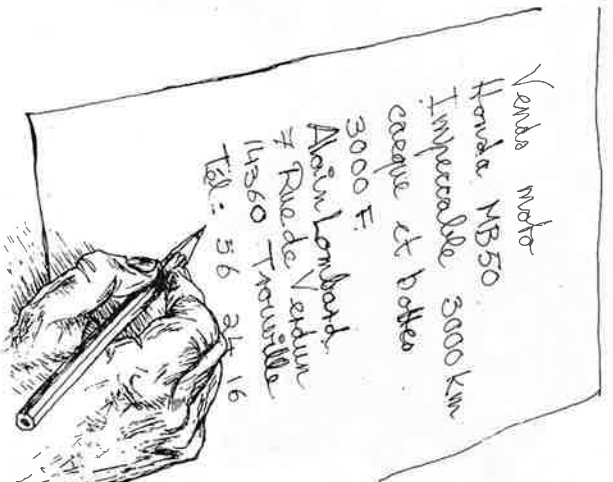 Vends moto
Honda MB50
Impeccable 3000 km
casque et bottes
3000 F.
Alain Lombard.
7 Rue de Verdun
14360 Trouville
Tél : 56 24 16